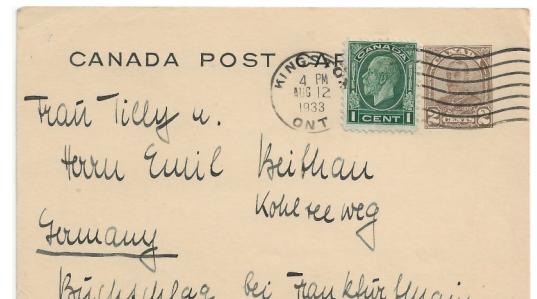 CANADA POST CAR
KINGSTON
4 PM
AUG 12
1933
ONT
CANADA
1 CENT 1
CANADA
2 CENTS 2
Frau Tilly u.
Herrn Emil Beithan
Kohlseeweg
Germany
Buchschlag bei Frankfurt Main